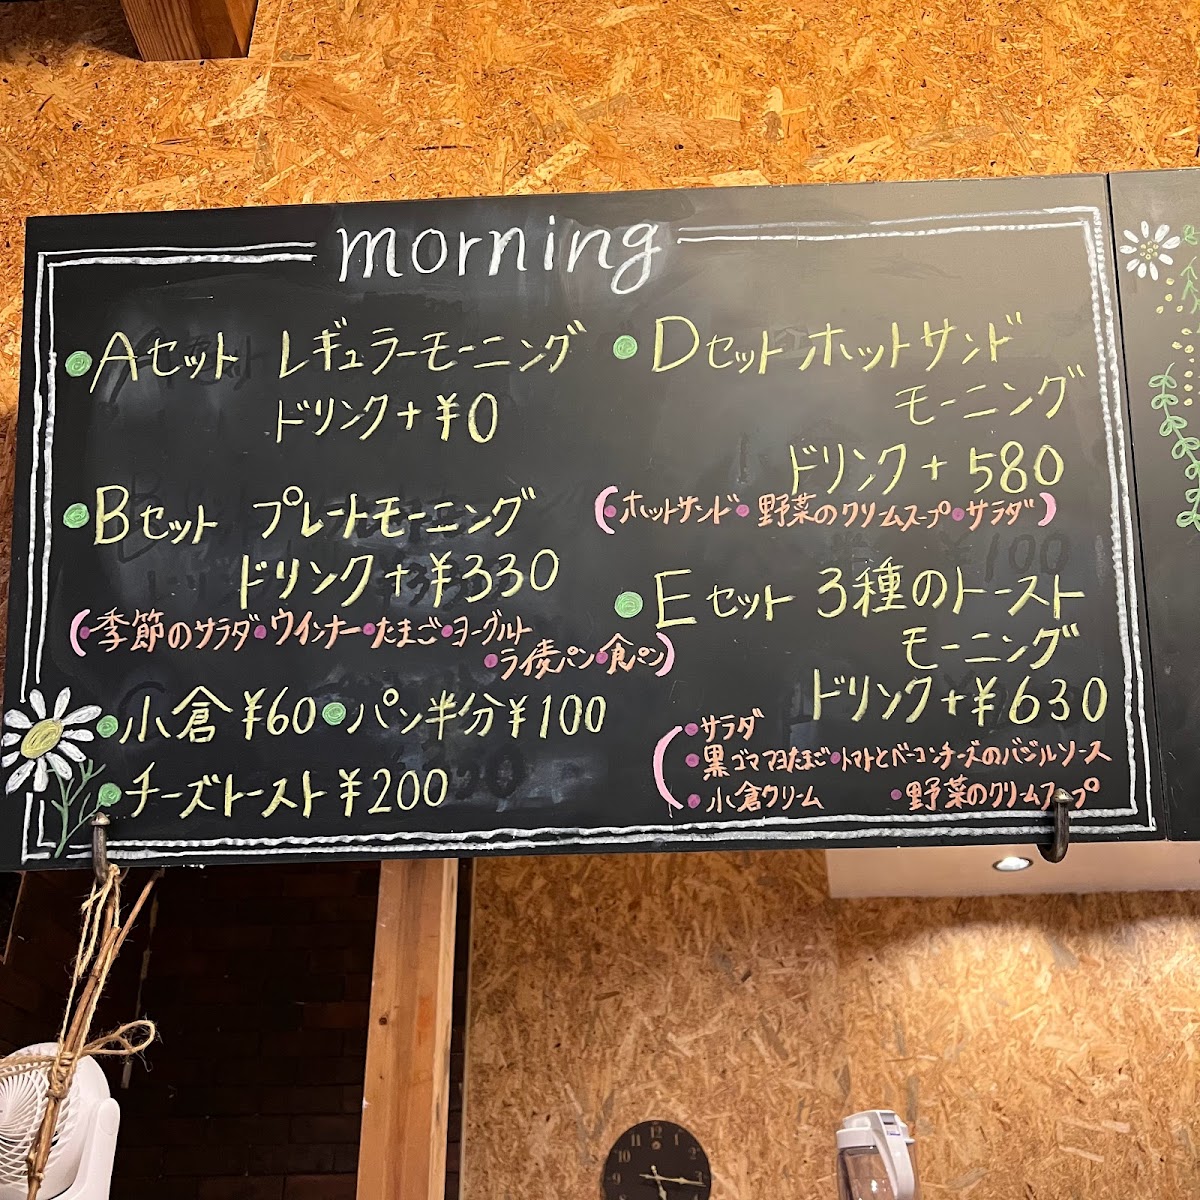 morning
Aセット レギュラーモーニング
ドリンク+¥0
Bセット プレートモーニング
ドリンク+¥330
(•季節のサラダ•ウインナー•たまご•ヨーグルト
•ライ麦パン•食パン)
小倉¥60 パン半分¥100
チーズトースト¥200
Dセット ホットサンド
モーニング
ドリンク+580
(•ホットサンド•野菜のクリームスープ•サラダ)
Eセット 3種のトースト
モーニング
ドリンク+¥630
(•サラダ
•黒ゴママヨたまご•トマトとベーコンチーズのバジルソース
•小倉クリーム •野菜のクリームスープ